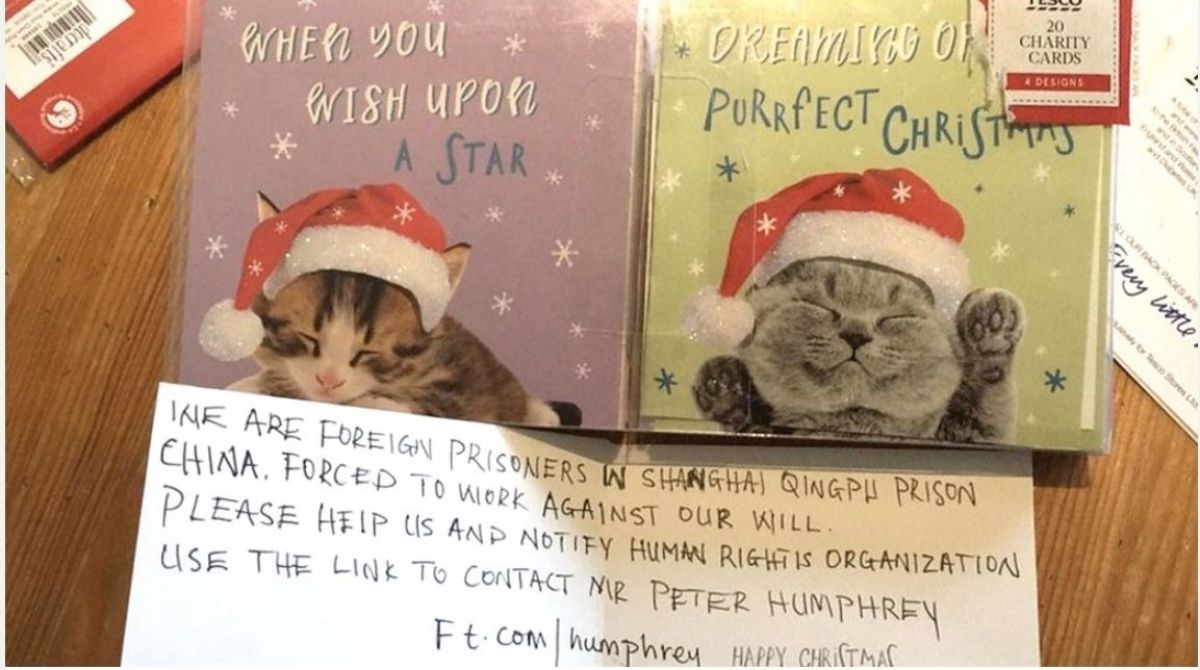 docrafts
WHEN YOU
WISH UPON
A STAR
DREAMING OF
PURRFECT CHRISTMAS
TESCO
20
CHARITY
CARDS
4 DESIGNS
Every little
Exclusively for Tesco Stores Ltd
WE ARE FOREIGN PRISONERS IN SHANGHAI QINGPU PRISON
CHINA. FORCED TO WORK AGAINST OUR WILL.
PLEASE HELP US AND NOTIFY HUMAN RIGHTS ORGANIZATION
USE THE LINK TO CONTACT MR PETER HUMPHREY
Ft.com/humphrey HAPPY CHRISTMAS